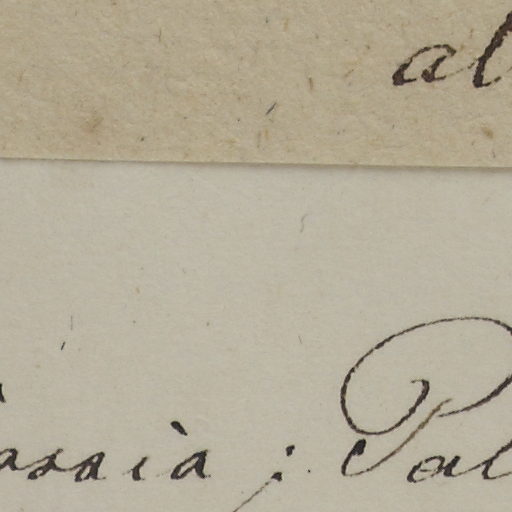 al
assià; Pal